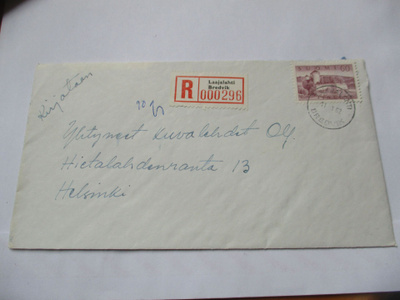 Kirjataan
R
Laajalahti
Bredvik
000296
Yhtyneet Kuvalehdet Oy.
Hietalahdenranta 13
Helsinki